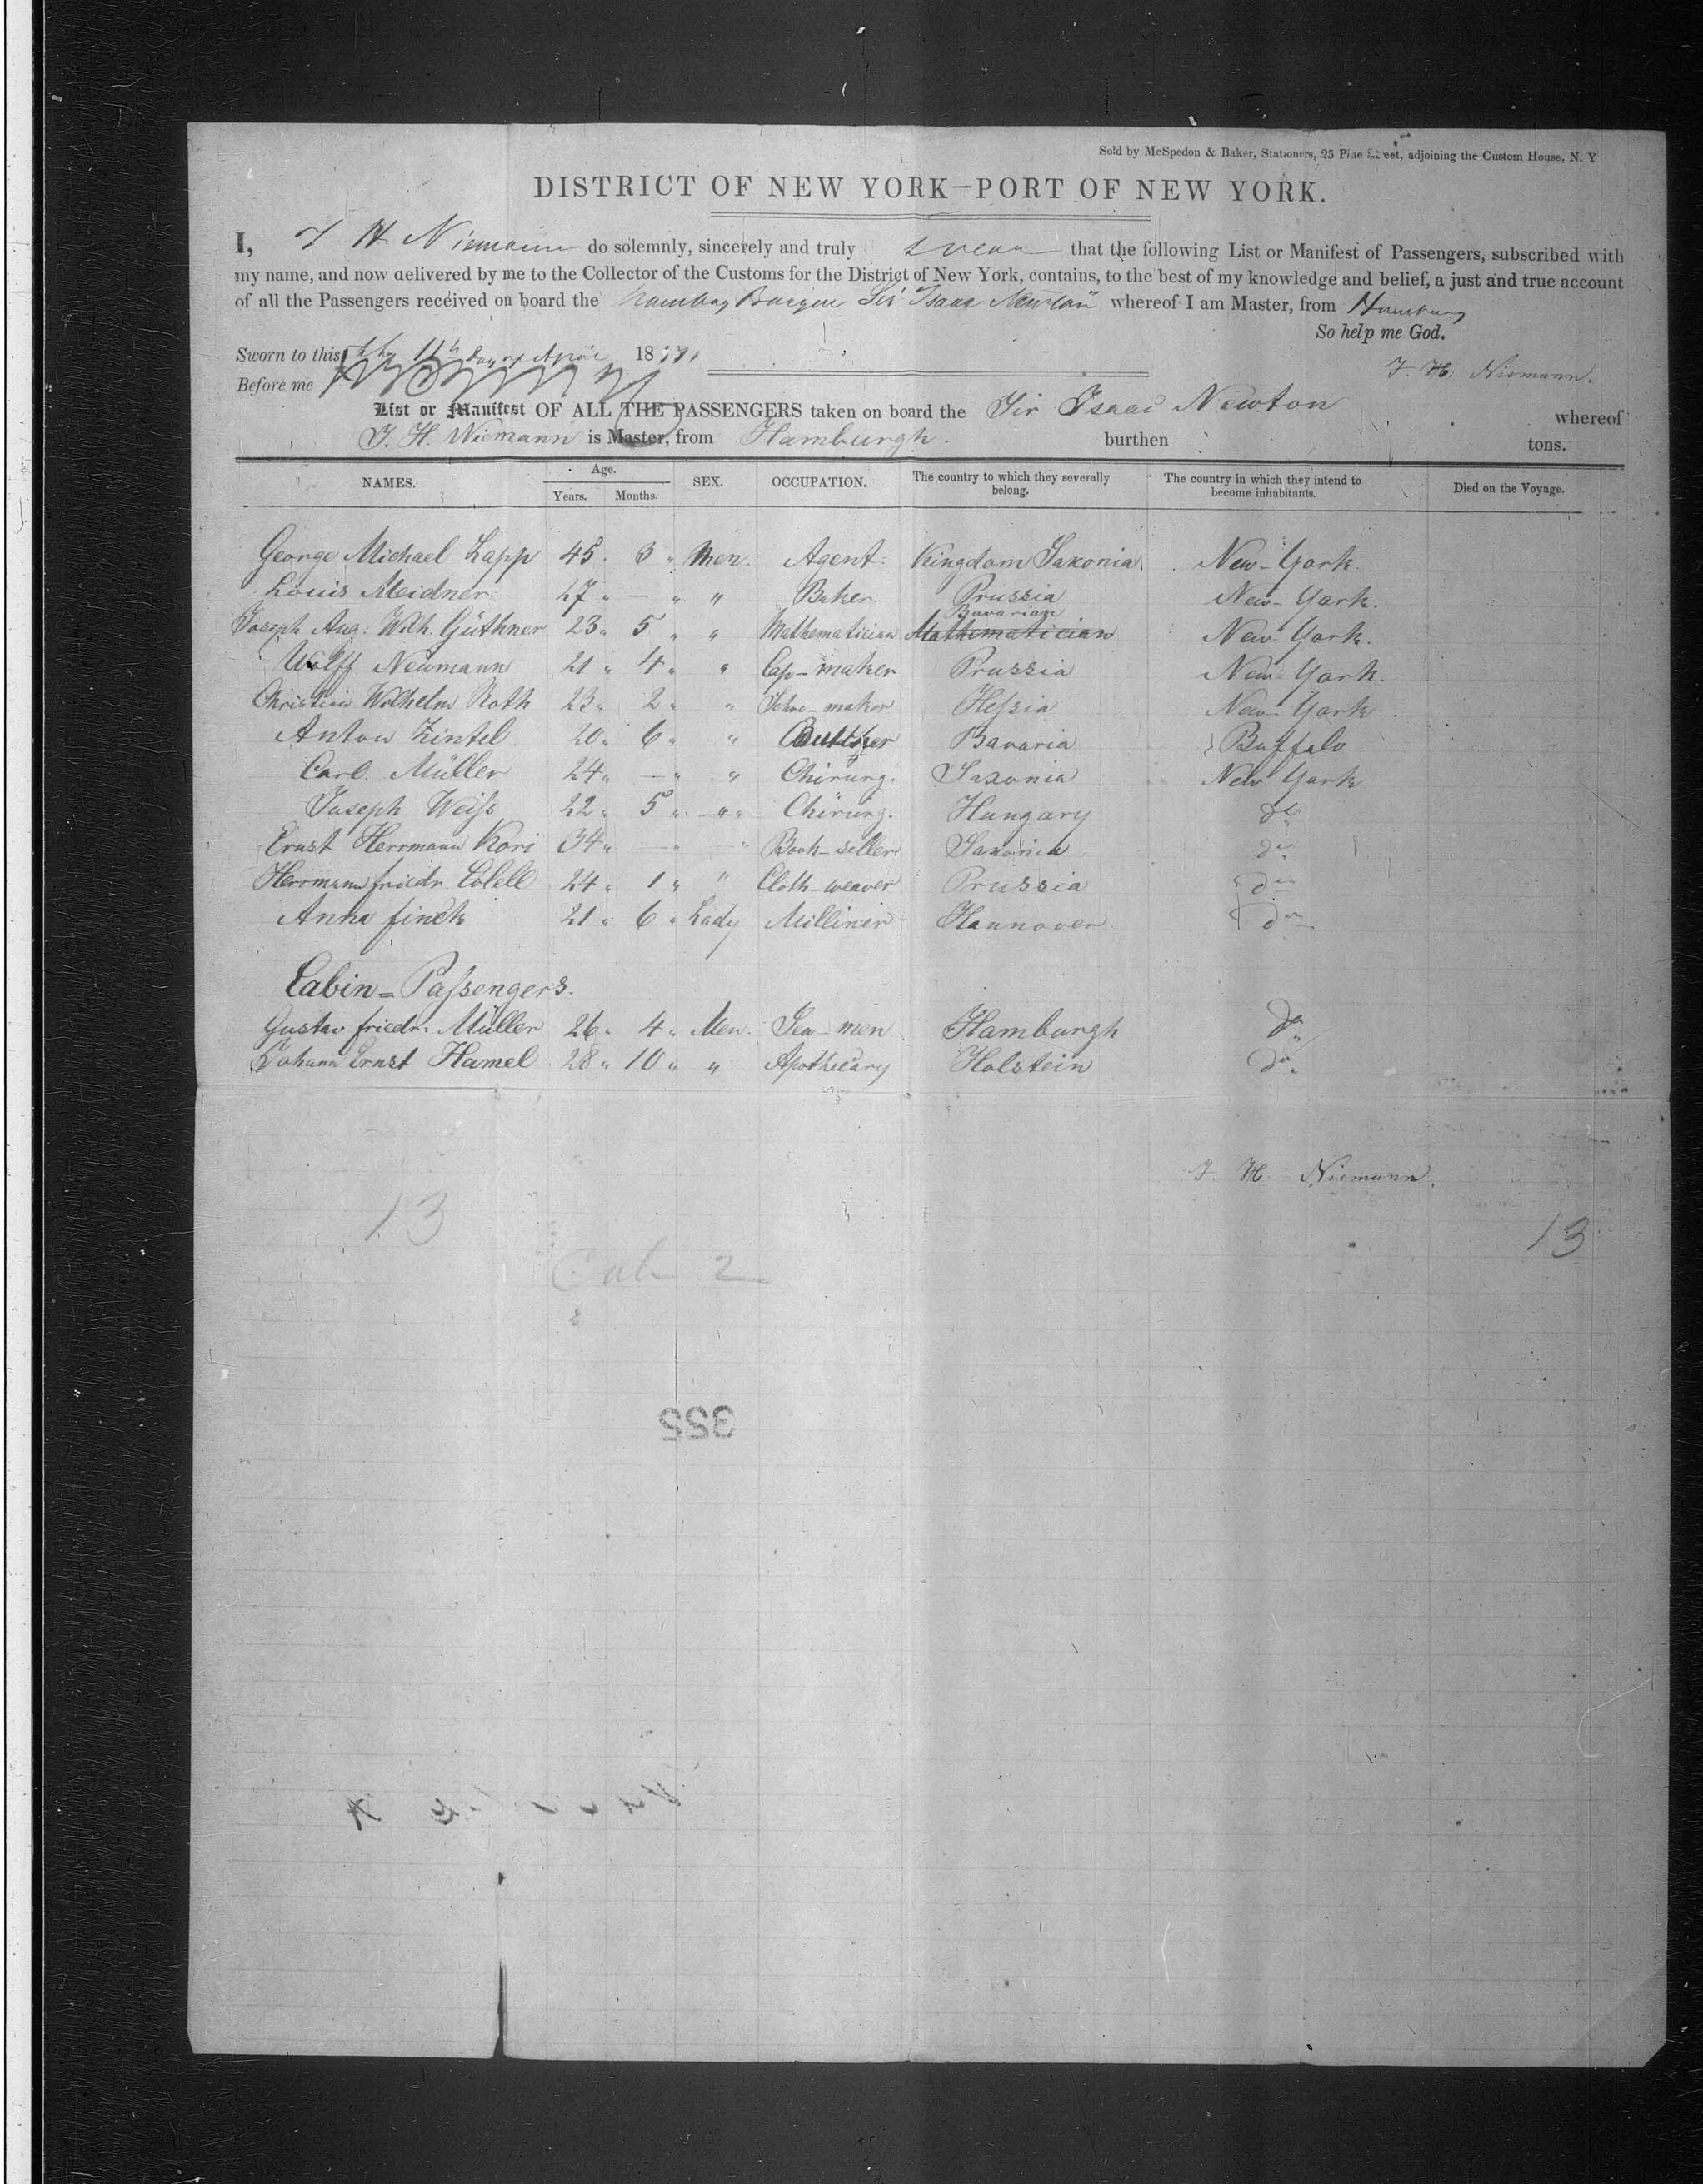 Sold by McSpedon & Baker, Stationers, 25 Pine Street, adjoining the Custom House, N. Y
DISTRICT OF NEW YORK—PORT OF NEW YORK.
I, J H Niemann do solemnly, sincerely and truly swear that the following List or Manifest of Passengers, subscribed with
my name, and now delivered by me to the Collector of the Customs for the District of New York, contains, to the best of my knowledge and belief, a just and true account
of all the Passengers received on board the Hamburg Barque Sir Isaac Newton whereof I am Master, from Hamburg
So help me God.
Sworn to this 11th day of April 18
J. H. Niemann.
Before me
List or Manifest OF ALL THE PASSENGERS taken on board the Sir Isaac Newton whereof
J. H. Niemann is Master, from Hamburgh. burthen tons.
NAMES. Age. Years. Months. SEX. OCCUPATION. The country to which they severally belong. The country in which they intend to become inhabitants. Died on the Voyage.
George Michael Lapp 45. 3 " Men. Agent. Kingdom Saxonia New-York.
Louis Meidner. 27 " — " " Baker Prussia New-York.
Bavarian
Joseph Aug: Wilh. Güthner 23 " 5 " " Mathematician Mathematician New York.
Wolff Neumann 21 " 4 " " Cap-maker Prussia New-York.
Christian Wilhelm Roth 23 " 2 " " Schoe-maker Hessia New-York.
Anton Zintel 20 " 6 " " Bavaria Buffalo
Carl Müller 24 " — " " Chirurg. Saxonia New York
Joseph Weiss 22 " 5 " " Chirurg. Hungary do
Ernst Herrmann Kori 34 " — " " Book-seller Saxonia do
Herrmann friedr. 24 " 1 " " Cloth-weaver Prussia do
Anna finck 21 " 6 " Lady Milliner Hannover do
Cabin=Passengers.
Gustav friedr: Müller 26 " 4 " Men Sea-men Hamburgh do
Johann Ernst Hamel 28 " 10 " " Apothecary Holstein do
J. H. Niemann.
13
13
Cab 2
355